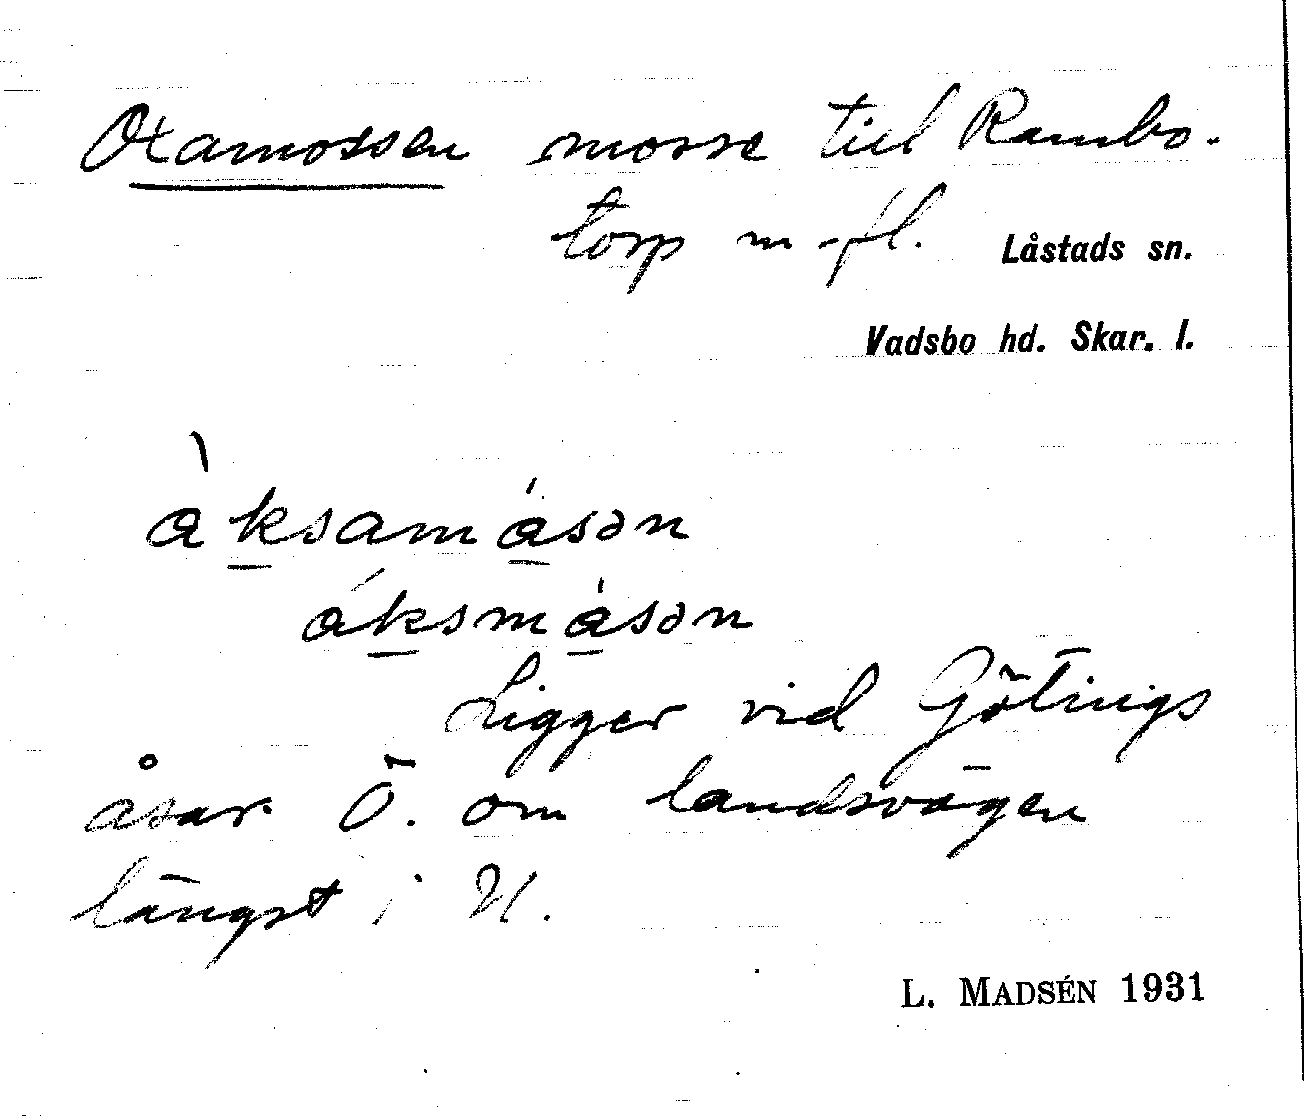 Oxamossen mosse till Rambo-
torp m.fl. Låstads sn.
Vadsbo hd. Skar. l.
àksamásən
áksmàsən
Ligger vid Götings
åsar Ö. om landsvägen
längst i N.
L. MADSÉN 1931